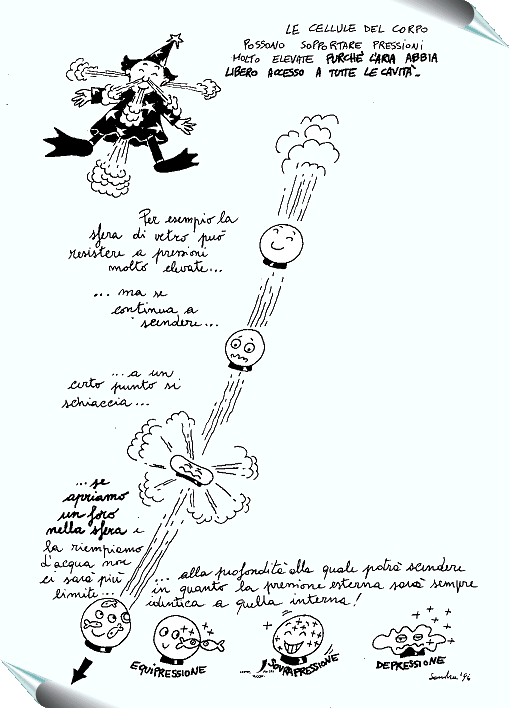 LE CELLULE DEL CORPO
POSSONO SOPPORTARE PRESSIONI
MOLTO ELEVATE PURCHÈ L'ARIA ABBIA
LIBERO ACCESSO A TUTTE LE CAVITÀ...
Per esempio la
sfera di vetro può
resistere a pressioni
molto elevate...
... ma se
continua a
scendere...
... a un
certo punto si
schiaccia...
...se
apriamo
un foro
nella sfera e
la riempiamo
d'acqua non
ci sarà più
limite...
... alla profondità alla quale potrà scendere
in quanto la pressione esterna sarà sempre
identica a quella interna!
EQUIPRESSIONE
SOVRAPRESSIONE
DEPRESSIONE
Sandra '96